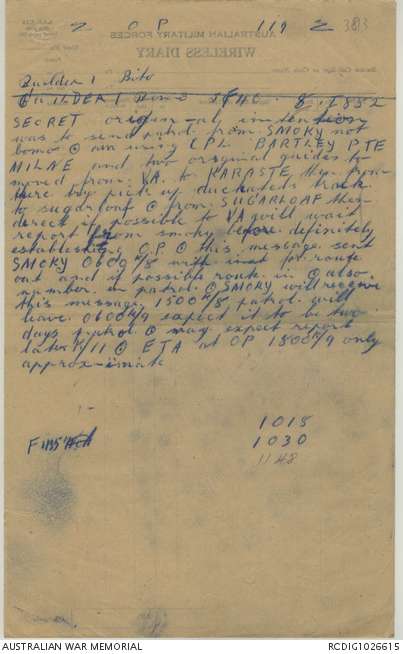 2 O P 119 2 383
AUSTRALIAN MILITARY FORCES
WIRELESS DIARY
Builder 1 Bito
SECRET original intention
was to send patrol from SMOKY not
bomo @ am using CPL BARTLEY PTE
MILNE and two original guides to
moved from VA. to KARASTE then from
there by pick up track
to sugarloaf @ from SUGARLOAF then
direct if possible to VA will wait
report from smoky before definitely
establishing O.P. @ this message sent
SMOKY 0600 K/8 with inst for route
out and if possible route in @ also
number in patrol @ SMOKY will receive
this message 1500 K/8 patrol will
leave 0600 K/9 expect it to be two
days patrol @ may expect report
later K/11 @ ETA at OP 1800 K/9 only
approx-imate
1015
1030
1148
AUSTRALIAN WAR MEMORIAL
RCDIG1026615